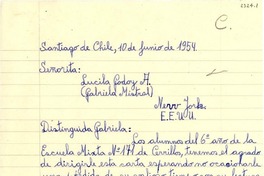 C.
Santiago de Chile, 10 de Junio de 1954.
Señorita:
Lucila Godoy A.
(Gabriela Mistral)
Nevv York.
E.E.U.U.
Distinguida Gabriela:
Los alumnos del 6º año de la
Escuela Mixta Nº 171 de Cerrillos, tenemos el agrado
de dirigirle esta carta esperando no ocasionarle